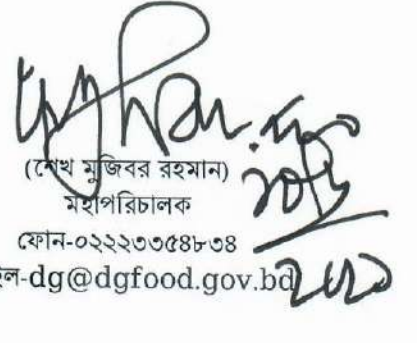 (শেখ মুজিবর রহমান)
মহাপরিচালক
ফোন-০২২২৩৩৫৪৮৩৪
ইল-dg@dgfood.gov.bd